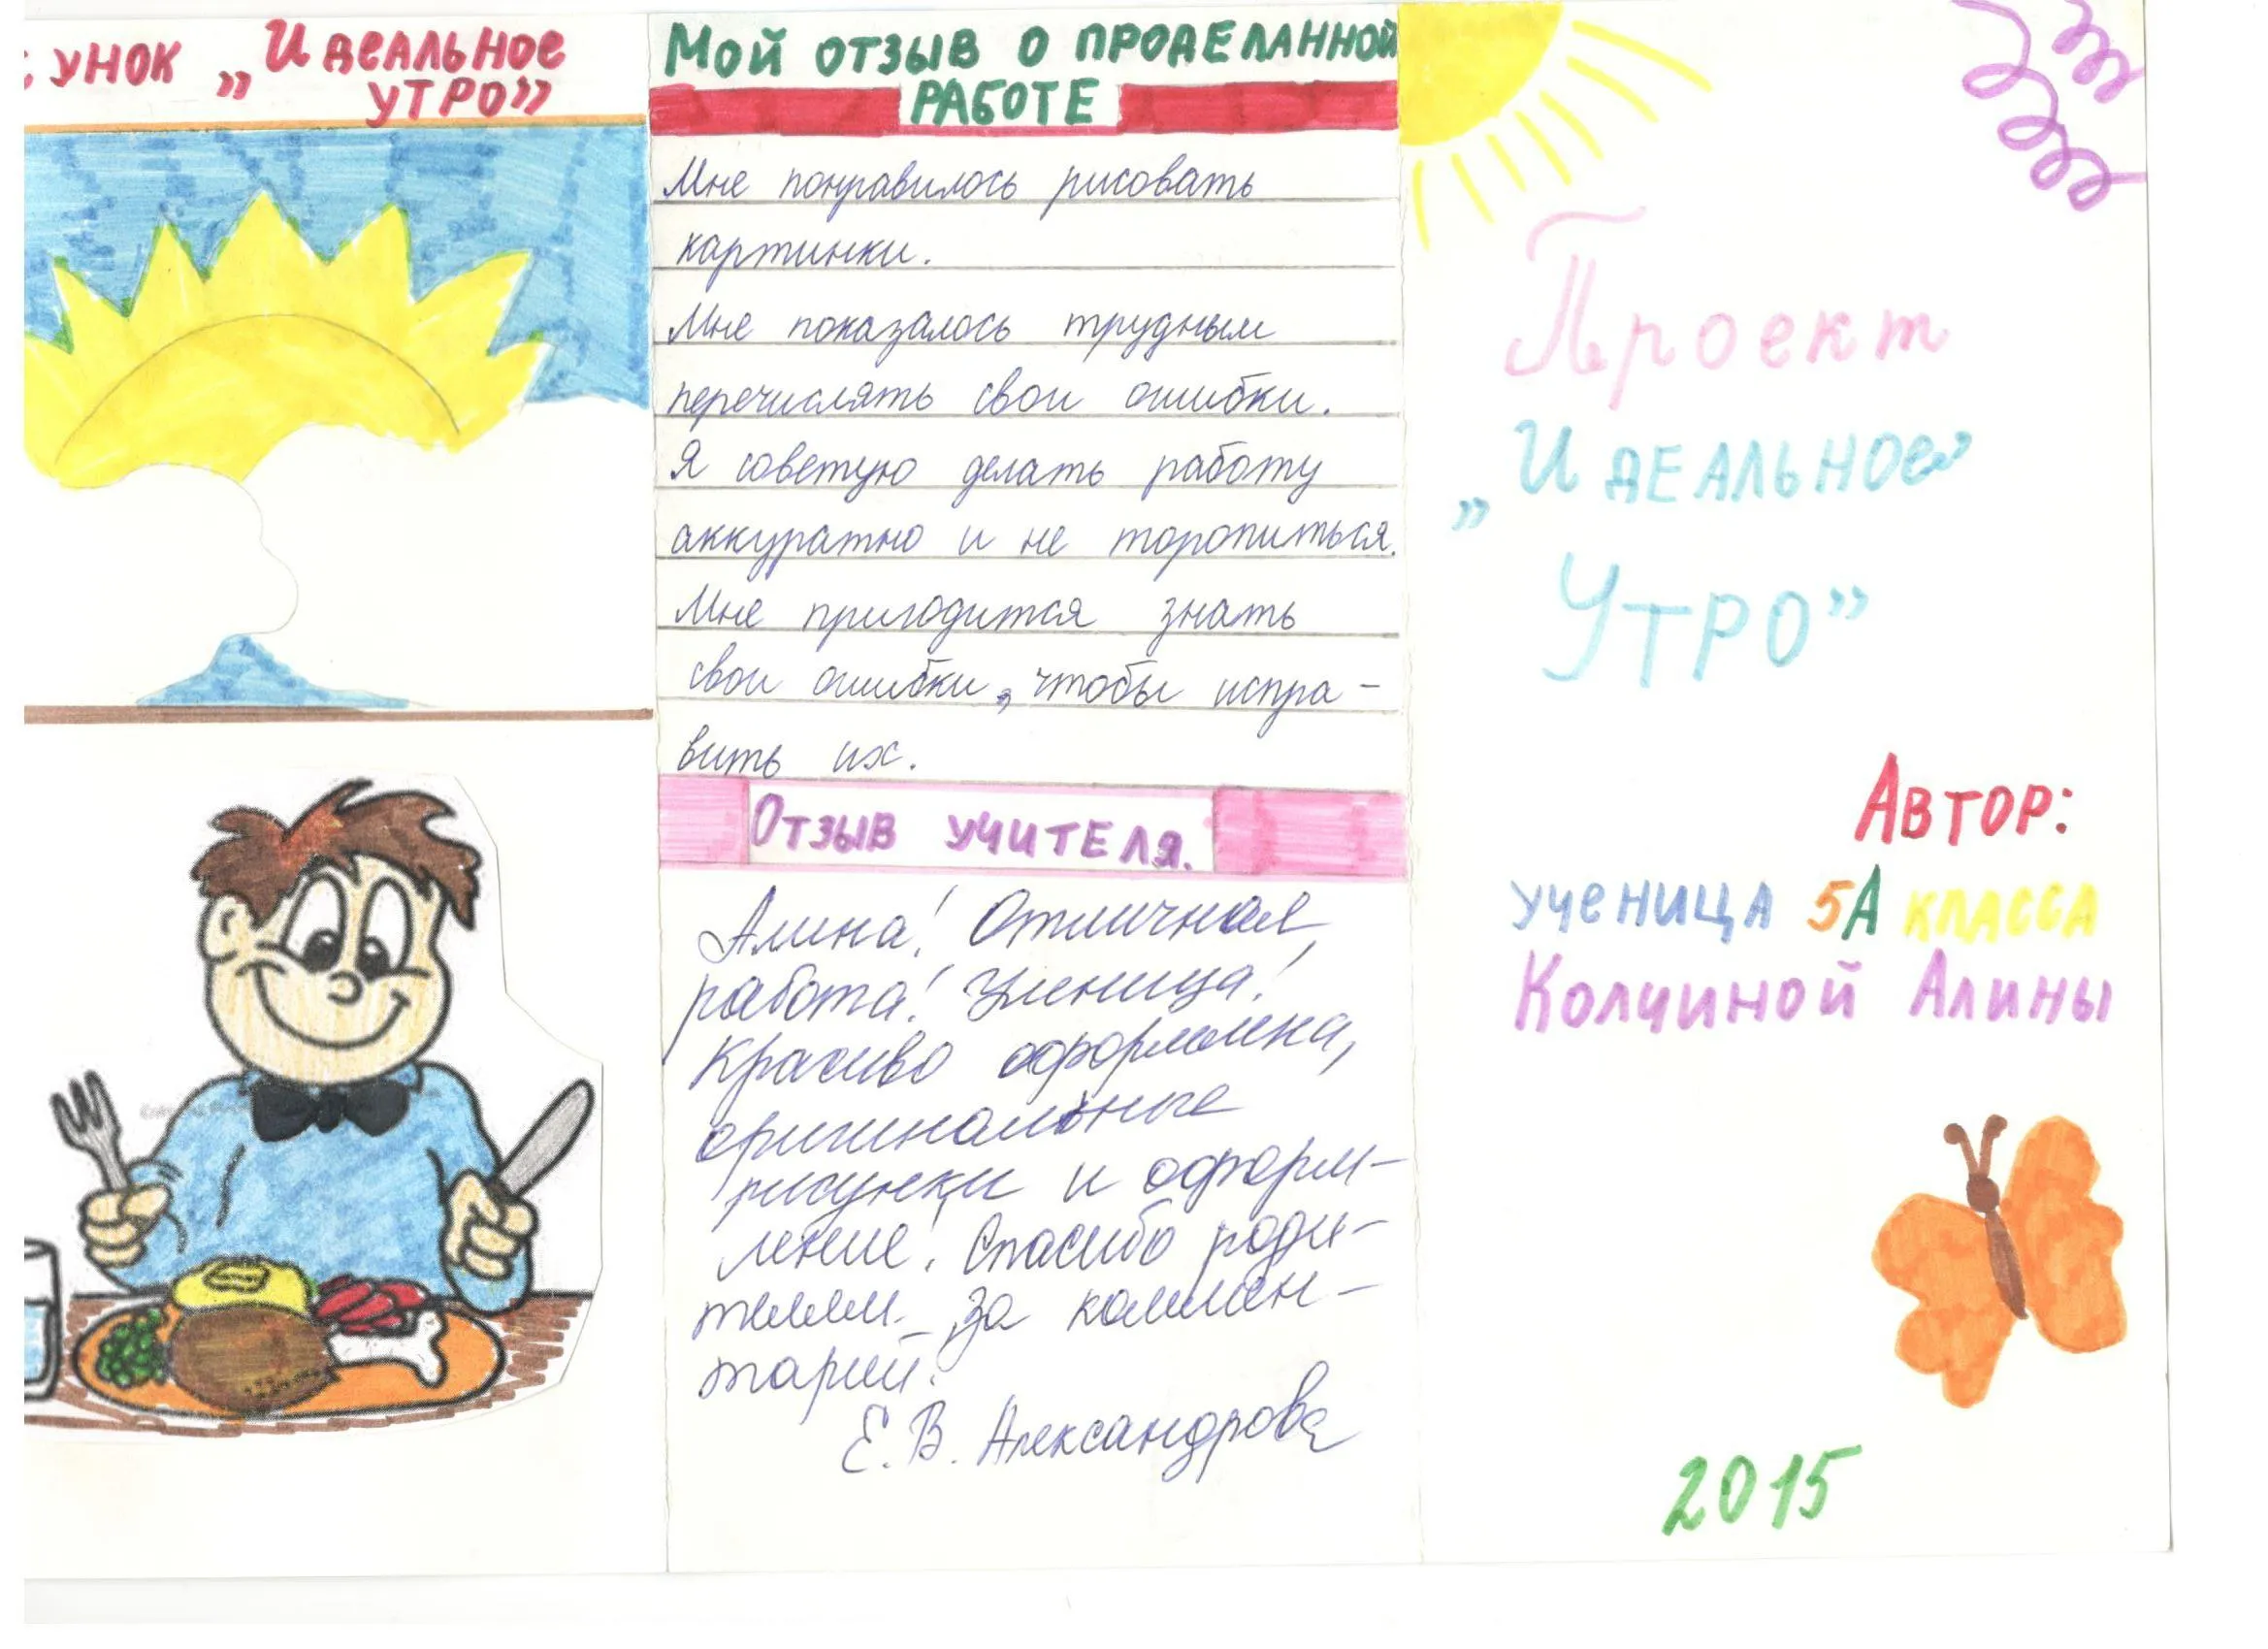 сунок „Идеальное
утро”
Мой отзыв о проделанной
работе
Мне понравилось рисовать
картинки.
Мне показалось трудным
перечислять свои ошибки.
Я советую делать работу
аккуратно и не торопиться.
Мне пригодится знать
свои ошибки, чтобы испра-
вить их.
Отзыв учителя.
Алина! Отличная
работа! Умница!
Красиво оформлена,
оригинальные
рисунки и оформ-
ление! Спасибо роди-
телям за коммен-
тарий!
Е.В. Александрова
Проект
„Идеальное
Утро”
Автор:
ученица 5А класса
Колчиной Алины
2015